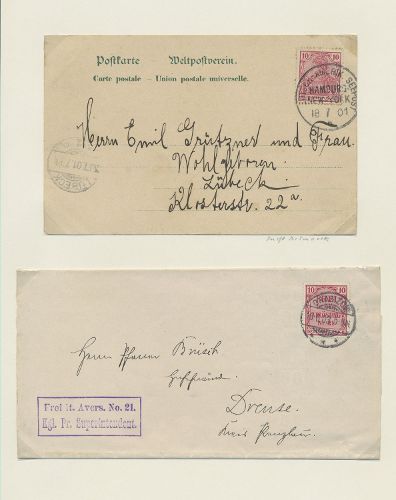 Postkarte Weltpostverein.
Carte postale — Union postale universelle.
10 10
HAMBURG-
NEW-YORK
18 7 01
Herrn Emil Grützner und Frau.
Wohlgeboren
Lübeck
Klosterstr. 22a.
LÜBECK
10 10
Herrn Pfarrer
Drense.
Kreis Prenzlau.
Frei lt. Avers. No. 21.
Kgl. Pr. Superintendent.